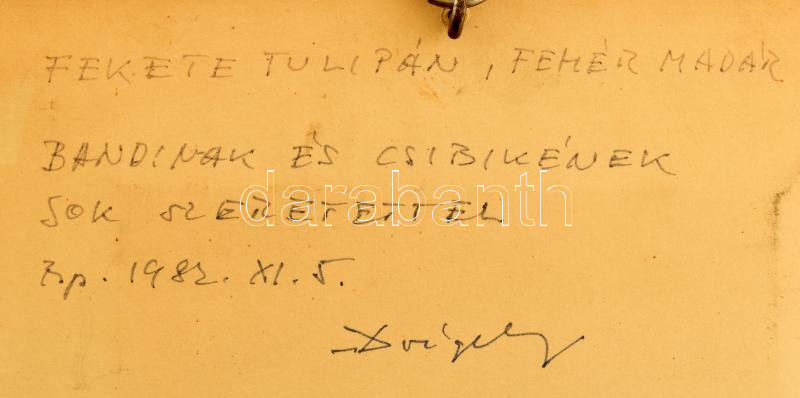 FEKETE TULIPÁN, FEHÉR MADÁR
BANDINAK ÉS CSIBIKÉNEK
darabanth
SOK SZERETETTEL
Bp. 1982. XI. 5.